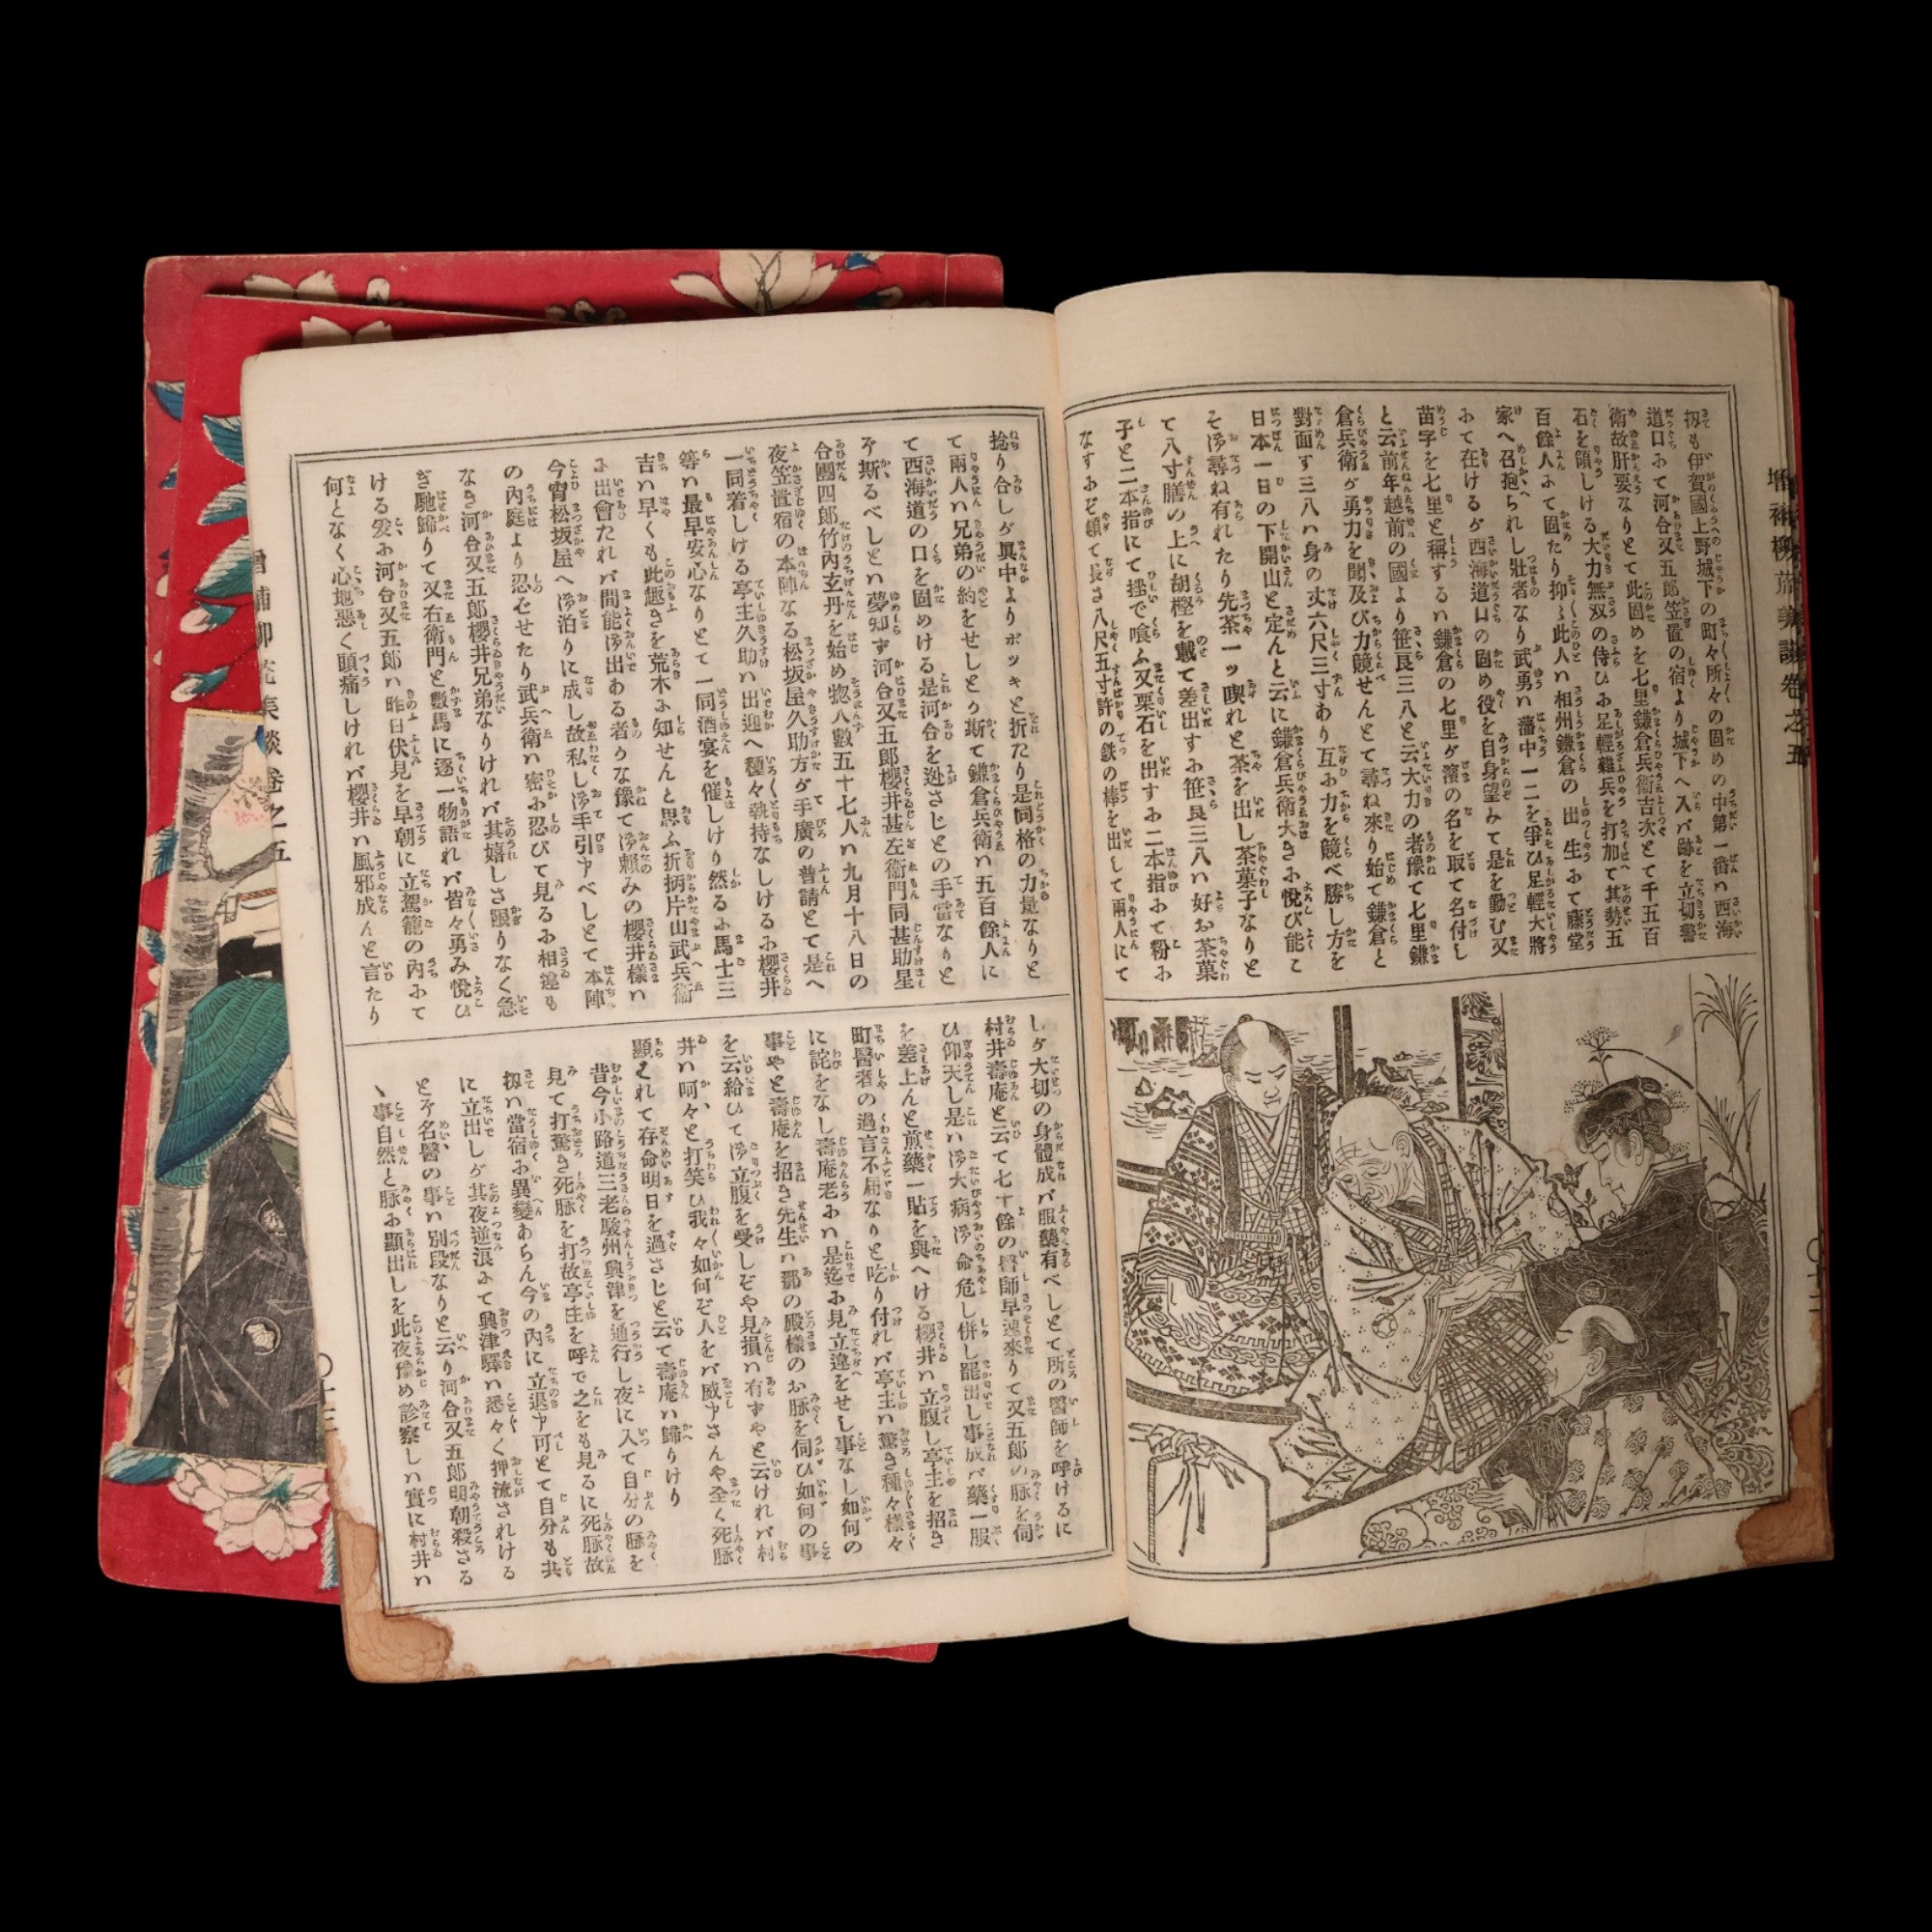 扨も伊賀國上野城下の町々所々の固めの中第一番ハ西海
道口ふて河合又五郎笠置の宿より城下へ入バ跡を立切警
衛故肝要なりとて此固めを七里鎌倉兵衛吉次とて千五百
石を領しける大力無双の侍ひふ足輕雜兵を打加て其勢五
百餘人ふて固たり抑〻此人ハ相州鎌倉の出生ふて藤堂
家へ召抱られし壯者なり武勇ハ藩中一二を爭ひ足輕大將
ふて在けるが西海道口の固め役を自身望みて是を勤む又
苗字を七里と稱するハ鎌倉の七里が濱の名を取て名付し
と云前年越前の國より笹良三八と云大力の者豫て七里鎌
倉兵衛が勇力を聞及び力競せんとて尋ね來り始て鎌倉と
對面す三八ハ身の丈六尺三寸あり互ふ力を競べ勝し方を
日本一日の下開山と定んと云に鎌倉兵衛大きふ悅び能こ
そ御尋ね有れたり先茶一ッ喫れと茶を出し茶菓子なりと
て八寸膳の上に胡桎を載て差出すふ笹良三八ハ好お茶菓
子と二本指にて捻で喰ふ又栗石を出すふ二本指ふて粉ふ
なすふぞ頓て長さ八尺五寸許の鉄の棒を出して兩人にて
捻り合しが眞中よりポッキと折たり是同格の力量なりと
て兩人ハ兄弟の約をせしとり斯て鎌倉兵衛ハ五百餘人に
て西海道の口を固めける是河合を迯さじとの手當なりと
斯るべしとハ夢知ず河合又五郎櫻井甚左衛門同甚助星
合團四郎竹內玄丹を始め惣人數五十七人ハ九月十八日の
夜笠置宿の本陣なる松坂屋久助方が手廣の普請とて是へ
一同着しける亭主久助ハ出迎へ種々執持なしけるふ櫻井
等ハ最早安心なりとて一同酒宴を催しけり然るふ馬士三
吉ハ早くも此趣きを荒木ふ知せんと思ふ折柄片山武兵衛
ふ出會たれバ間能御出ある者かな豫て御賴みの櫻井樣ハ
今宵松坂屋へ御泊りに成し故私し御手引申べしとて本陣
の內庭より忍ばせたり武兵衛ハ密ふ忍びて見るふ相違も
なき河合又五郎櫻井兄弟なりけれバ其嬉しさ限りなく急
ぎ馳歸りて又右衛門と數馬に逐一物語れバ皆々勇み悅び
ける爰ふ河合又五郎ハ昨日伏見を早朝に立駕籠の內ふて
何となく心地惡く頭痛しけれバ櫻井ハ風邪成んと言たり
しが大切の身體成バ服藥有べしとて所の醫師を呼けるに
村井壽庵と云て七十餘の醫師早速來りて又五郎の脉を伺
ひ仰天し是ハ御大病御命危し併し罷出し事成バ藥一服
を差上んと煎藥一貼を與へける櫻井ハ立腹し亭主を招き
町醫者の過言不屆なりと叱り付れバ亭主ハ驚き種々樣々
に詫をなし壽庵老ふハ是迄ふ見立違をせし事なし如何の
事やと壽庵を招き先生ハ那の殿樣のお脉を伺ひ如何の事
を云給ひて御立腹を受しぞや見損ハ有ずやと云けれバ村
井ハ呵々と打笑ひ我々如何ぞ人をバ威申さんや全く死脉
顯ハれて存命明日を過さじと云て壽庵ハ歸りけり
昔今小路道三老駿州興津を通行し夜に入て自分の脉を
見て打驚き死脉を打故亭主を呼で之をも見るに死脉故
扨ハ當宿ふ異變あらん今の內に立退申可とて自分も共
に立出しが其夜逆浪ふて興津驛ハ悉々く押流されける
とぞ名醫の事ハ別段なりと云り河合又五郎明朝殺さる
事自然と脉ふ顯出しを此夜豫め診察しハ實に村井ハ